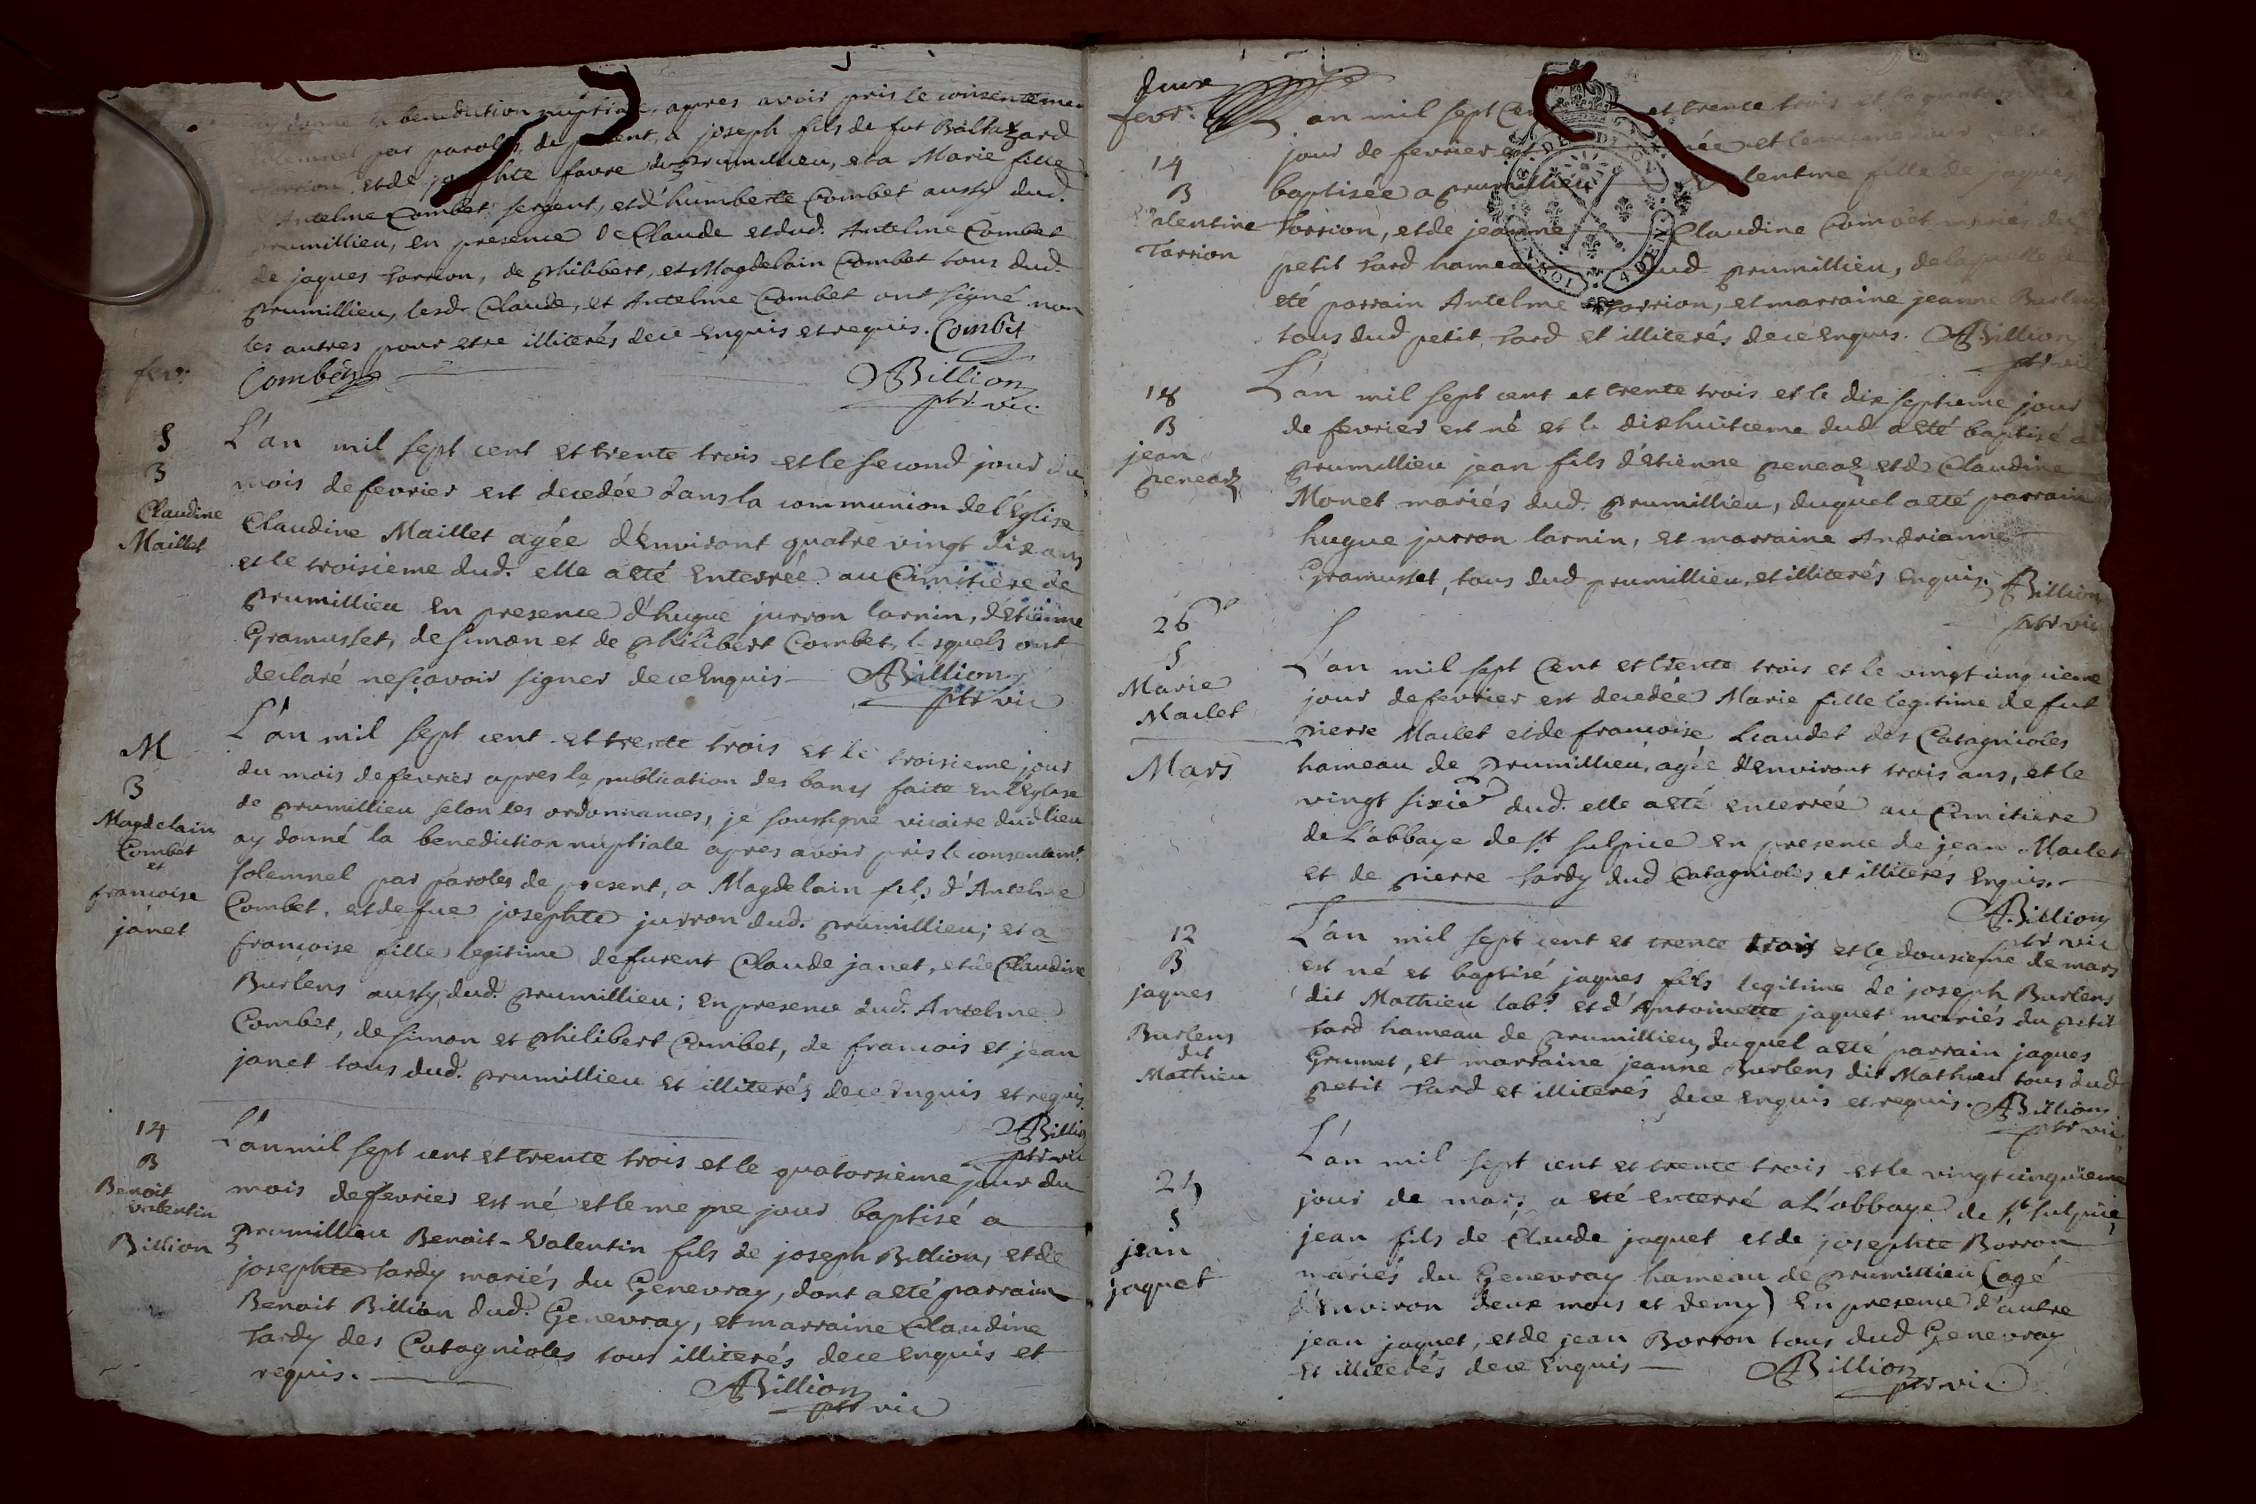 ay donné la benediction nuptiale, apres avoir pris le consentemen
solemnel par paroles de present, a joseph fils de fut Balthazard
Tarrion, et de josephte favre de prumillieu, et a Marie fille
d'Antelme Combet sergent, et d'humberte Combet aussy dud.
prumillieu, en presence de Claude et dud. Antelme Combet
de jaques tarrion, de philibert, et Magdelain Combet tous dud.
prumillieu, lesd. Claude, et Antelme Combet ont signé non
les autres pour etre illiterés de ce enquis et requis. Combet
Combet
ABillion
ptr. vic.
fevr.
S
3
Claudine
Maillet
L'an mil sept cent et trente trois et le second jour du
mois de fevrier est decedée dans la communion de l'Eglise
Claudine Maillet agée d'Environt quatre vingt dix ans
et le troisieme dud. elle a eté Enterrée au Cimitière de
prumillieu En presence d'hugue jurron larnin, d'Etienne
Gramusset, de simon et de philibert Combet, lesquels ont
declaré ne sçavoir signer de ce Enquis
ABillion
ptr vic
M
3
Magdelain
Combet
et
francoise
janet
L'an mil sept cent et trente trois et le troisieme jour
du mois de fevrier apres la publication des bans faite En l'Eglise
de prumillieu selon les ordonnances, je soussigné vicaire dud lieu
ay donné la benediction nuptiale apres avoir pris le consentemt
solemnel par paroles de present, a Magdelain fils d'Antelme
Combet, et de fue josephte jurron dud. prumillieu; et a
françoise fille legitime de furent Claude janet, et de Claudine
Burlens aussy dud. prumillieu; En presence dud. Antelme
Combet, de simon et philibert Combet, de francois et jean
janet tous dud. prumillieu et illiterés de ce Enquis et requis.
ABillion
ptr vic
14
B
Benoit
valentin
Billion
L'an mil sept cent et trente trois et le quatorsieme jour du
mois de fevrier est né et le meme jour baptisé a
prumillieu Benoit-Valentin fils de joseph Billion, et de
josephte tardy mariés du Genevray, dont a eté parrain
Benoit Billion dud. Genevray, et marraine Claudine
Tardy des Catagnioles tous illiterés de ce enquis et
requis.
ABillion
ptr vic
deux
fevr.
14
B
Valentine
Tarrion
L'an mil sept cent et trente trois et le quatorsieme
jour de fevrier est née et le meme jour
baptisée a prumillieu Valentine fille de jaques
tarrion, et de jeanne Claudine Comoet mariés du
petit tard hameau dud. prumillieu, de laquelle a
eté parrain Antelme tarrion, et marraine jeanne Burlens
tous dud petit tard et illiterés de ce Enquis. ABillion
ptr vic
18
B
jean
peneaz
L'an mil sept cent et trente trois et le dix septieme jour
de fevrier est né et le dixhuitieme dud a eté baptisé a
prumillieu jean fils d'Etienne peneaz et de Claudine
Monet mariés dud. prumillieu, duquel a eté parrain
hugue jurron larnin, et marraine Andrianne
Gramusset, tous dud prumillieu, et illiterés Enquis. ABillion
ptr vic
26
S
Marie
Maclet
L'an mil sept Cent et trente trois et le vingt cinquieme
jour de fevrier est decedée Marie fille legitime de fut
pierre Maclet et de françoise Liaudet des Catagnioles
hameau de prumillieu, agée d'environt trois ans, et le
vingt sixie dud. elle a eté enterrée au Cimitiere
de L'abbaye de st sulpice En presence de jean Maclet
et de pierre tardy dud Catagnioles et illiterés Enquis.
ABillion
ptr vic
Mars
12
B
jaques
Burlens
dit
Mathieu
L'an mil sept cent et trente trois et le dousieme de mars
est né et baptisé jaques fils legitime de joseph Burlens
dit Mathieu labr. et d'Antoinette jaquet mariés du petit
tard hameau de prumillieu, duquel a eté parrain jaques
Grumet, et marraine jeanne Burlens dit Mathieu tous dud
petit tard et illiterés de ce enquis et requis. ABillion
ptr vic
25
S
jean
jaquet
L'an mil sept cent et trente trois et le vingt cinquieme
jour de mars a eté enterré a L'abbaye de st sulpice,
jean fils de Claude jaquet et de josephte Borron
mariés du Genevray hameau de prumillieu (agé
d'Environ deux mois et demy) En presence d'autre
jean jaquet, et de jean Borron tous dud Genevray
et illiterés de ce Enquis
ABillion
ptr vic.